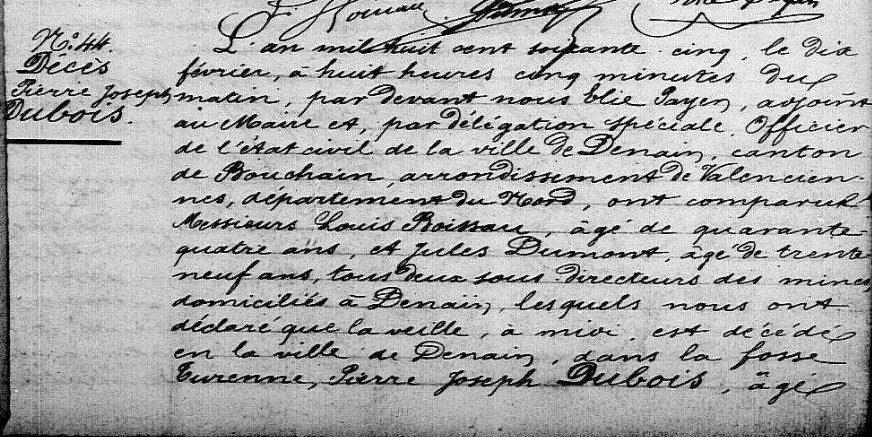 N.º 44.
Décès
Pierre Joseph
Dubois.
L'an mil huit cent soixante cinq, le dix
février, à huit heures cinq minutes du
matin, par devant nous Elie Payen, adjoint
au Maire et, par délégation spéciale, Officier
de l'état civil de la ville de Denain, canton
de Bouchain, arrondissement de Valencien-
nes, département du Nord, ont comparu
Messieurs Louis Boissau, âgé de quarante-
quatre ans, et Jules Dumont, âgé de trente
neuf ans, tous deux sous-directeurs des mines,
domiciliés à Denain, lesquels nous ont
déclaré que la veille, à midi, est décédé
en la ville de Denain, dans la fosse
Turenne, Pierre Joseph Dubois, âgé